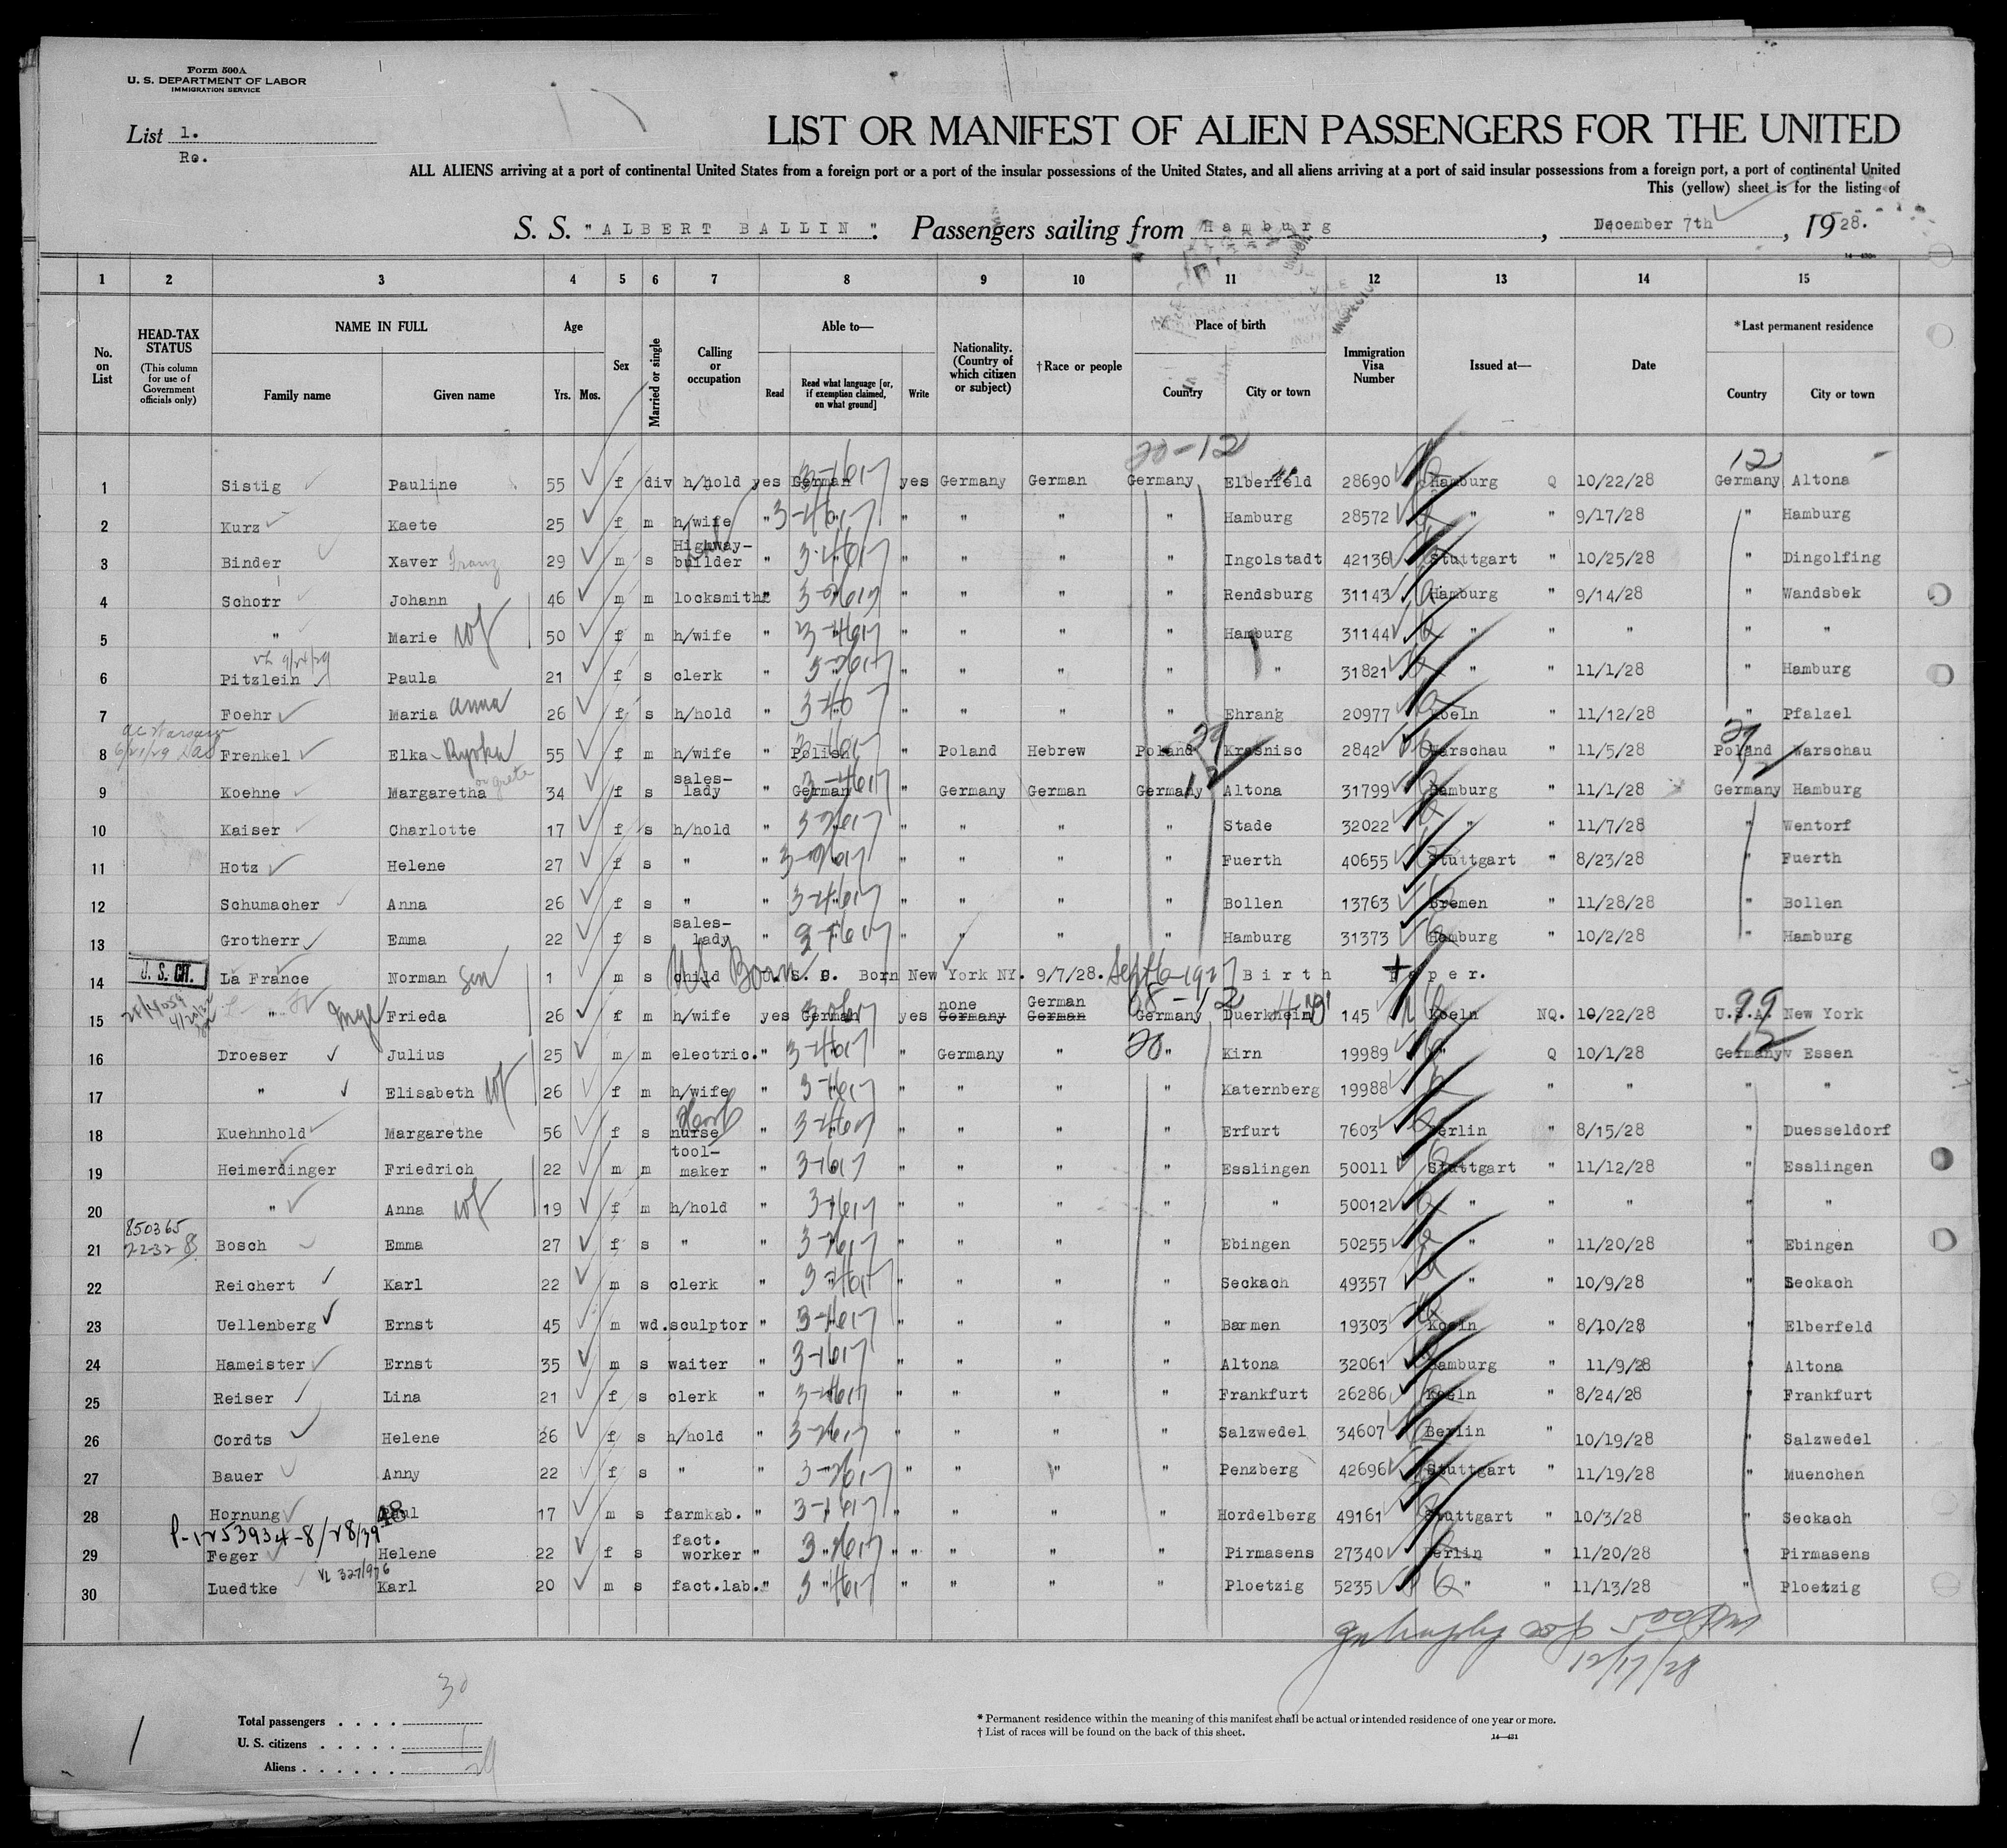 Form 500A
U. S. DEPARTMENT OF LABOR
IMMIGRATION SERVICE
List 1.
Re.
LIST OR MANIFEST OF ALIEN PASSENGERS FOR THE UNITED
ALL ALIENS arriving at a port of continental United States from a foreign port or a port of the insular possessions of the United States, and all aliens arriving at a port of said insular possessions from a foreign port, a port of continental United
This (yellow) sheet is for the listing of
S. S. "ALBERT BALLIN". Passengers sailing from Hamburg, December 7th, 1928.
14-430
1 2 3 4 5 6 7 8 9 10 11 12 13 14 15
No. on List
HEAD-TAX STATUS
(This column for use of Government officials only)
NAME IN FULL
Family name
Given name
Age
Yrs. Mos.
Sex
Married or single
Calling or occupation
Able to—
Read
Read what language [or, if exemption claimed, on what ground]
Write
Nationality. (Country of which citizen or subject)
†Race or people
Place of birth
Country
City or town
Immigration Visa Number
Issued at—
Date
*Last permanent residence
Country
City or town
20-12 12
1 Sistig Pauline 55 f div h/hold yes German yes Germany German Germany Elberfeld 28690 Hamburg Q 10/22/28 Germany Altona
2 Kurz Kaete 25 f m h/wife " " " " " " Hamburg 28572 " " 9/17/28 " Hamburg
3 Binder Xaver Franz 29 m s Highway-builder " " " " " " Ingolstadt 42136 Stuttgart " 10/25/28 " Dingolfing
4 Schorr Johann 46 m m locksmith " " " " " " Rendsburg 31143 Hamburg " 9/14/28 " Wandsbek
5 " Marie wf 50 f m h/wife " " " " " " Hamburg 31144 " " " " "
6 Pitzlein Paula 21 f s clerk " " " " " " " 31821 " " 11/1/28 " Hamburg
7 Foehr Maria Anna 26 f s h/hold " " " " " Ehrang 20977 Koeln " 11/12/28 " Pfalzel
8 Frenkel Elka Ryska 55 f m h/wife " Polish " Poland Hebrew Poland Krasnisc 2842 Warschau " 11/5/28 Poland Warschau
9 Koehne Margaretha or Grete 34 f s sales-lady " German " Germany German Germany Altona 31799 Hamburg " 11/1/28 Germany Hamburg
10 Kaiser Charlotte 17 f s h/hold " " " " " " Stade 32022 " " 11/7/28 " Wentorf
11 Hotz Helene 27 f s " " " " " " " Fuerth 40655 Stuttgart " 8/23/28 " Fuerth
12 Schumacher Anna 26 f s " " " " " " " Bollen 13763 Bremen " 11/28/28 " Bollen
13 Grotherr Emma 22 f s sales-lady " " " " " " Hamburg 31373 Hamburg " 10/2/28 " Hamburg
14 U. S. CIT. La France Norman Son 1 m s child US Born Born New York NY. 9/7/28. Sept 6-1927 Birth Paper.
15 " Inge Frieda 26 f m h/wife yes German yes Germany none German German Germany Duerkheim 145 Koeln NQ. 10/22/28 U.S.A. New York
16 Droeser Julius 25 m m electric. " " " Germany " " Kirn 19989 " Q 10/1/28 Germany Essen
17 " Elisabeth wf 26 f m h/wife " " " " " " Katernberg 19988 " " " "
18 Kuehnhold Margarethe 56 f s nurse " " " " " " Erfurt 7603 Berlin " 8/15/28 " Duesseldorf
19 Heimerdinger Friedrich 22 m m tool-maker " " " " " Esslingen 50011 Stuttgart " 11/12/28 " Esslingen
20 " Anna wf 19 f m h/hold " " " " " " 50012 " " " " "
850365
2-2-32
21 Bosch Emma 27 f s " " " " " " " Ebingen 50255 " " 11/20/28 " Ebingen
22 Reichert Karl 22 m s clerk " " " " " " Seckach 49357 " " 10/9/28 " Seckach
23 Uellenberg Ernst 45 m wd. sculptor " " " " " Barmen 19303 Koeln " 8/10/28 " Elberfeld
24 Hameister Ernst 35 m s waiter " " " " " Altona 32061 Hamburg " 11/9/28 " Altona
25 Reiser Lina 21 f s clerk " " " " " " Frankfurt 26286 Koeln " 8/24/28 " Frankfurt
26 Cordts Helene 26 f s h/hold " " " " " " Salzwedel 34607 Berlin " 10/19/28 " Salzwedel
27 Bauer Anny 22 f s " " " " " " " Penzberg 42696 Stuttgart " 11/19/28 " Muenchen
28 Hornung Paul 48 17 m s farmkab. " " " " " Hordelberg 49161 Stuttgart " 10/3/28 " Seckach
29 Feger Helene 22 f s fact. worker " " " " " " Pirmasens 27340 Berlin " 11/20/28 " Pirmasens
30 Luedtke Karl 20 m s fact.lab. " " " " " " Ploetzig 5235 " " 11/13/28 " Ploetzig
12/17/28
Total passengers . . . . 30
U. S. citizens . . . . . 1
Aliens . . . . . . 29
* Permanent residence within the meaning of this manifest shall be actual or intended residence of one year or more.
† List of races will be found on the back of this sheet.
14-431